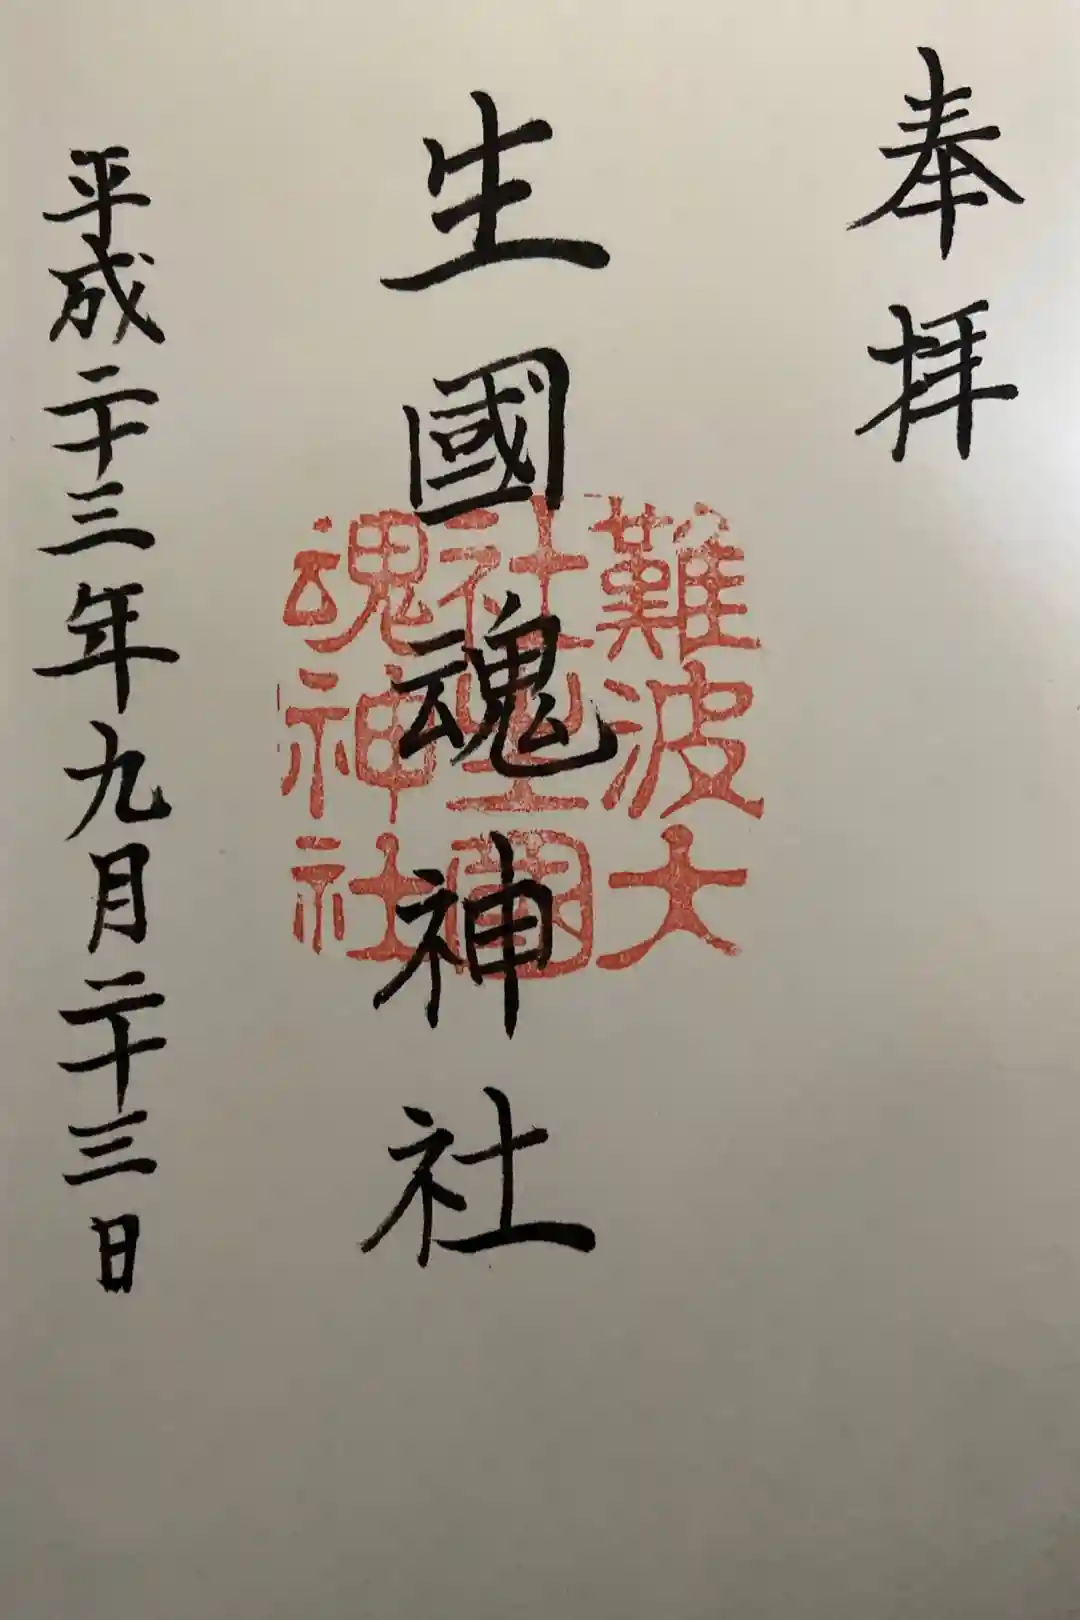 奉拝
生國魂神社
難波大
社生國
魂神社
平成二十三年九月二十三日